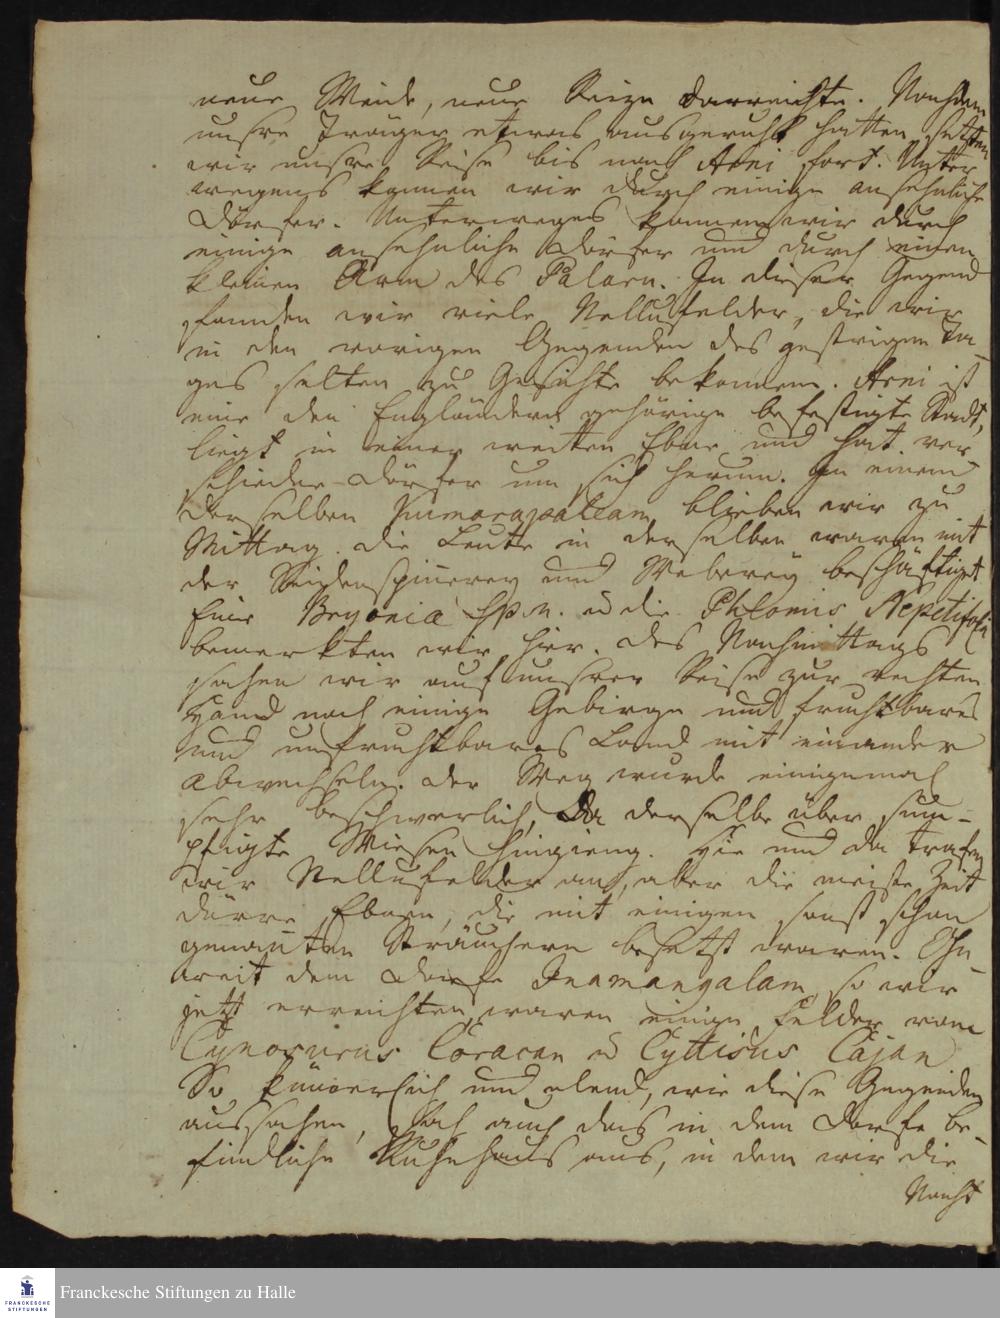 neue Weide, neue Reize darreichte. Nachdem
unsre Träger etwas ausgeruht hatten, setzten
wir unsre Reise bis nach Arni fort. Unter
wegens kamen wir durch einige ansehnliche
Dörfer. Unterweges kamen wir durch
einige ansehnliche Dörfer und durch einen
kleinen Arm des Palaru. In dieser Gegend
fanden wir viele Nellufelder, die wir
in den vorigen Gegenden des gestrigen Ta-
ges selten zu Gesichte bekommen. Arni ist
eine den Engländern gehörige befestigte Stadt,
liegt in einer weiten Ebne und hat ver
schiedne Dörfer um sich herum. In einem
derselben blieben wir zu
Mittag. Die Leute in derselben waren mit
der Seidenspinnerey und Weberey beschäftiget
Eine Bryonia Spn. u die Phlomis Nepetifolia
bemerkten wir hier. Des Nachmittags
sahen wir auf unsrer Reise zur rechten
Hand noch einige Gebirge und fruchtbares
und unfruchtbares Land mit einander
abwechseln. Der Weg wurde einigemal
sehr beschwerlich, da derselbe über sum-
pfigte Wiesen hingieng. Hie und da trafen
wir Nellufelder an, aber die meiste Zeit
dürre Ebnen, die mit einigen sonst schon
genannten Sträuchern besetzt waren. Ohn
weit dem Dorfe Inamangalam, so wir
jetzt erreichten, waren einige Felder vom
Cynosurus Coracan u Cyttisus Cajan
So kümmerlich und elend, wie diese Gegenden
aussahen, sah auch das in dem Dorfe be-
findliche Ruhehaus aus, in dem wir die
Nacht
Franckesche Stiftungen zu Halle
FRANCKESCHE
STIFTUNGEN